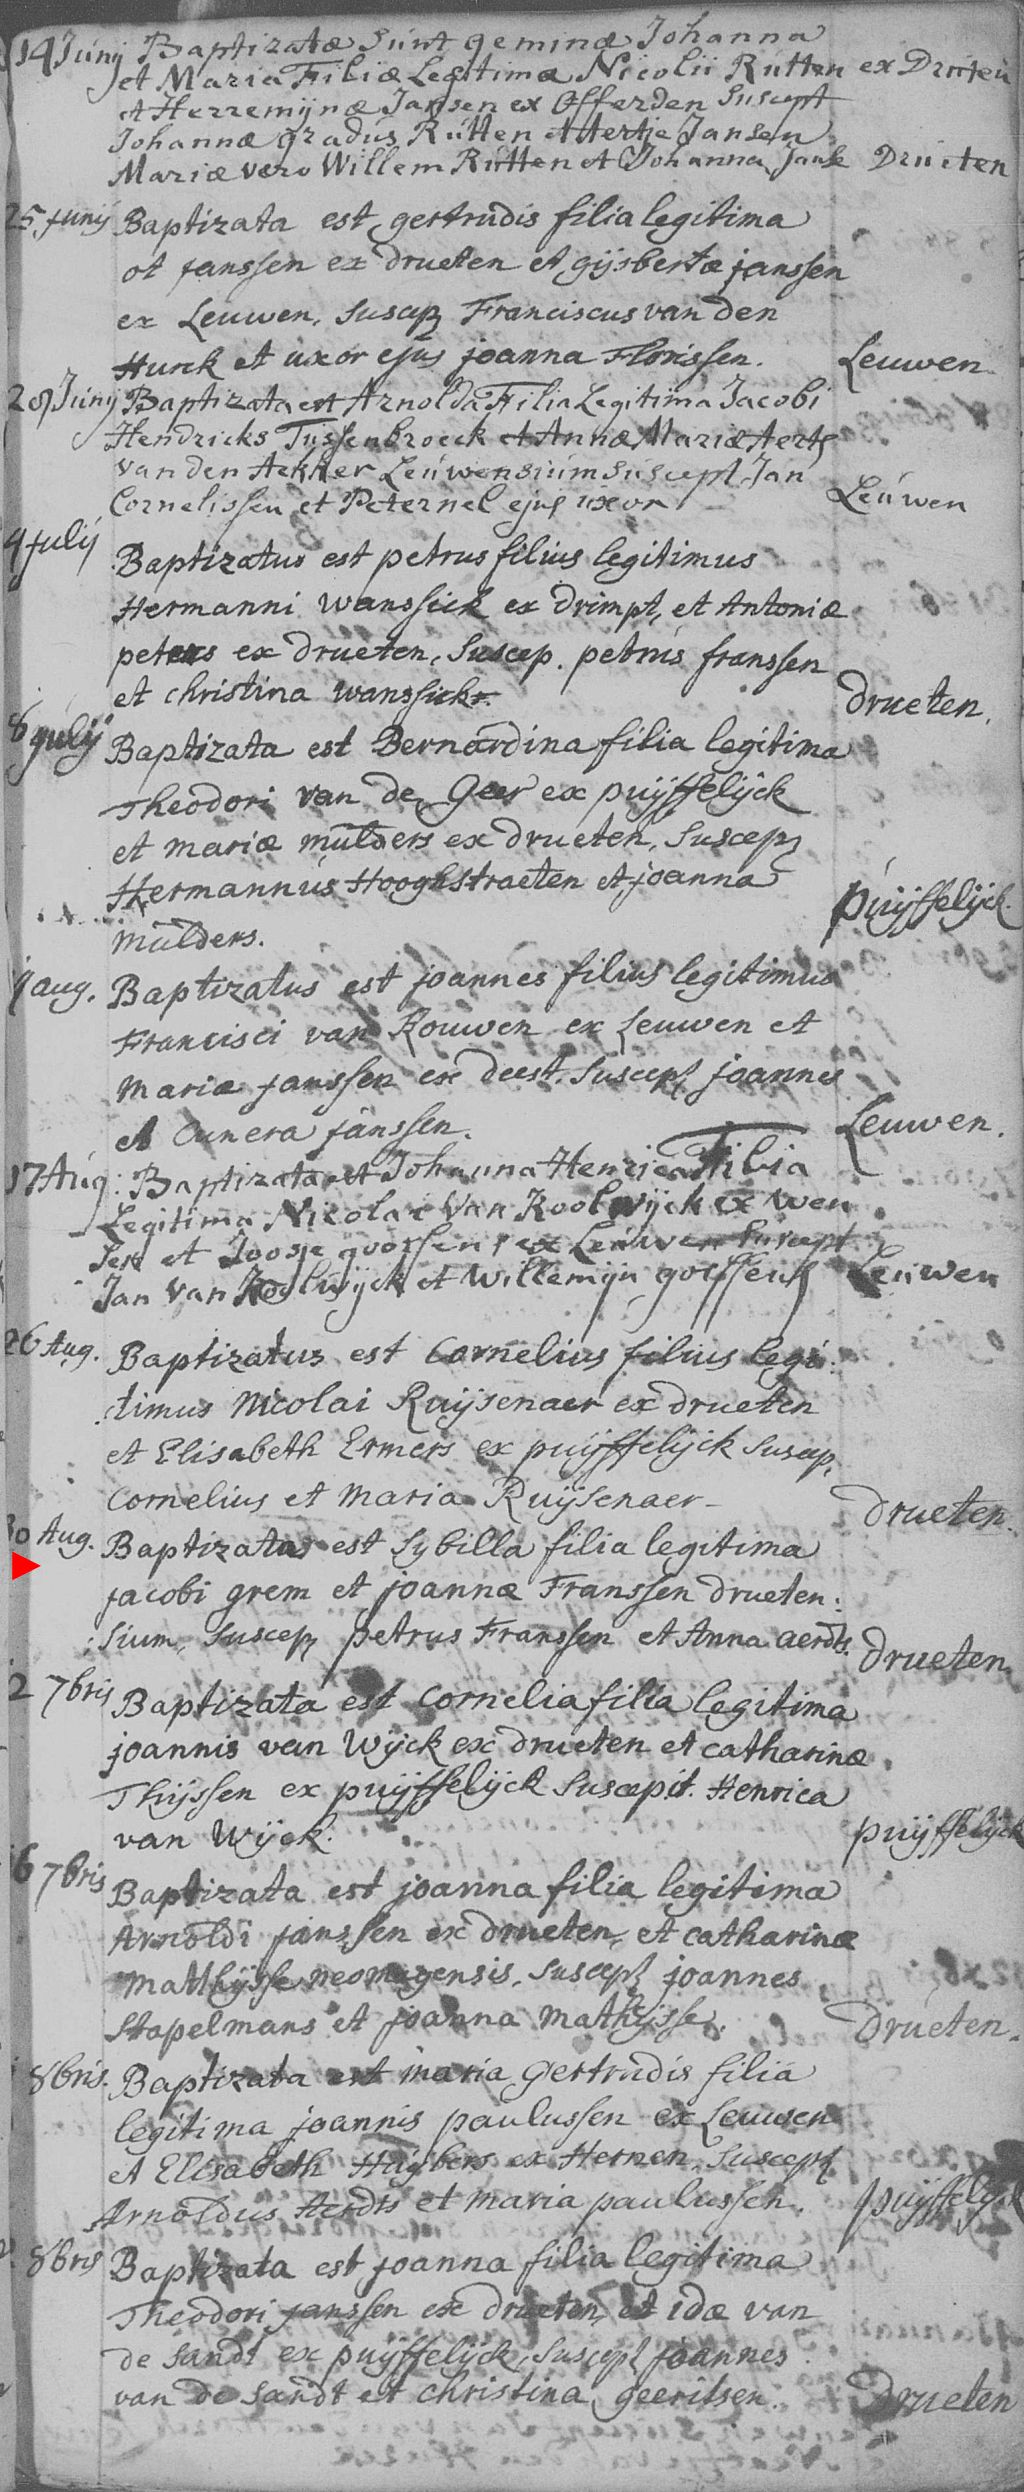 14 Junij Baptizatæ Sunt geminæ Johanna
et Maria Filiæ Legitimæ Nicolii Rutten ex Druten
et Herremijnæ Jansen ex Offerden Suscept
Johannæ gradus Rutten et Aertje Jansen
Mariæ vero Willem Rutten et Johanna Janse Drueten
25 Junij Baptizata est gertrudis filia legitima
ot janssen ex drueten et gijsbertæ janssen
ex Leuwen, Suscep Franciscus van den
Hurck et uxor ejus joanna Florissen. Leuwen
29 Junij Baptizata est Arnolda Filia Legitima Jacobi
Hendricks Tijssenbroeck et Annæ Mariæ Aerts
van den Aekker Leuwensium Suscept Jan
Cornelissen et Peternel ejus uxor Leuwen
4 julij
Baptizatus est petrus filius legitimus
Hermanni wanssick ex drimpt, et Antoniæ
peters ex drueten, Suscep. petrus franssen
et christina wanssick drueten.
8 julij Baptizata est Bernardina filia legitima
Theodori van de Geer ex puijffelijck
et mariæ mulders ex drueten, Suscep
Hermannus Hooghstraeten et joanna puijffelijck.
mulders.
9 aug. Baptizatus est joannes filius legitimus
Francisci van Rouwen ex Leuwen et
mariæ janssen ex deest. Suscep joannes
et Cunera janssen. Leuwen.
17 Aug: Baptizata et Johanna Henrica Filia
Legitima Nicolai Van Koolwijck ex Wen
sen et Joosje goossens ex Leuwen Suscept
Jan Van Koolwijck et Willemijn goossens Leuwen
26 Aug. Baptizatus est Cornelius filius legi:
timus Nicolai Ruijsenaer ex drueten
et Elisabeth Ermers ex puijffelijck Suscep.
Cornelius et Maria Ruijsenaer drueten.
30 Aug. Baptizata est Sybilla filia legitima
jacobi grem et joannæ Franssen drueten:
:sium, Suscep petrus Franssen et Anna aerdts. drueten
2 7bris Baptizata est Cornelia filia legitima
joannis van Wijck ex drueten et catharinæ
Thijssen ex puijffelijck Suscepit. Henrica
van Wijck. puijffelijck
6 7bris
Baptizata est joanna filia legitima
Arnoldi janssen ex drueten, et catharinæ
matthijsse neomagensis. Suscep joannes
Stapelmans et joanna mathijsse. Drueten.
8bris. Baptizata est maria gertrudis filia
legitima joannis paulussen ex Leuwen
et Elisabeth Huijbers ex Hernen. Suscep
Arnoldus Aerdts et maria paulussen. puijffelijck
8bris Baptizata est joanna filia legitima
Theodori janssen ex drueten, et idæ van
de Sandt ex puijffelijck, Suscep joannes
van de Sandt et christina geeritsen. Drueten